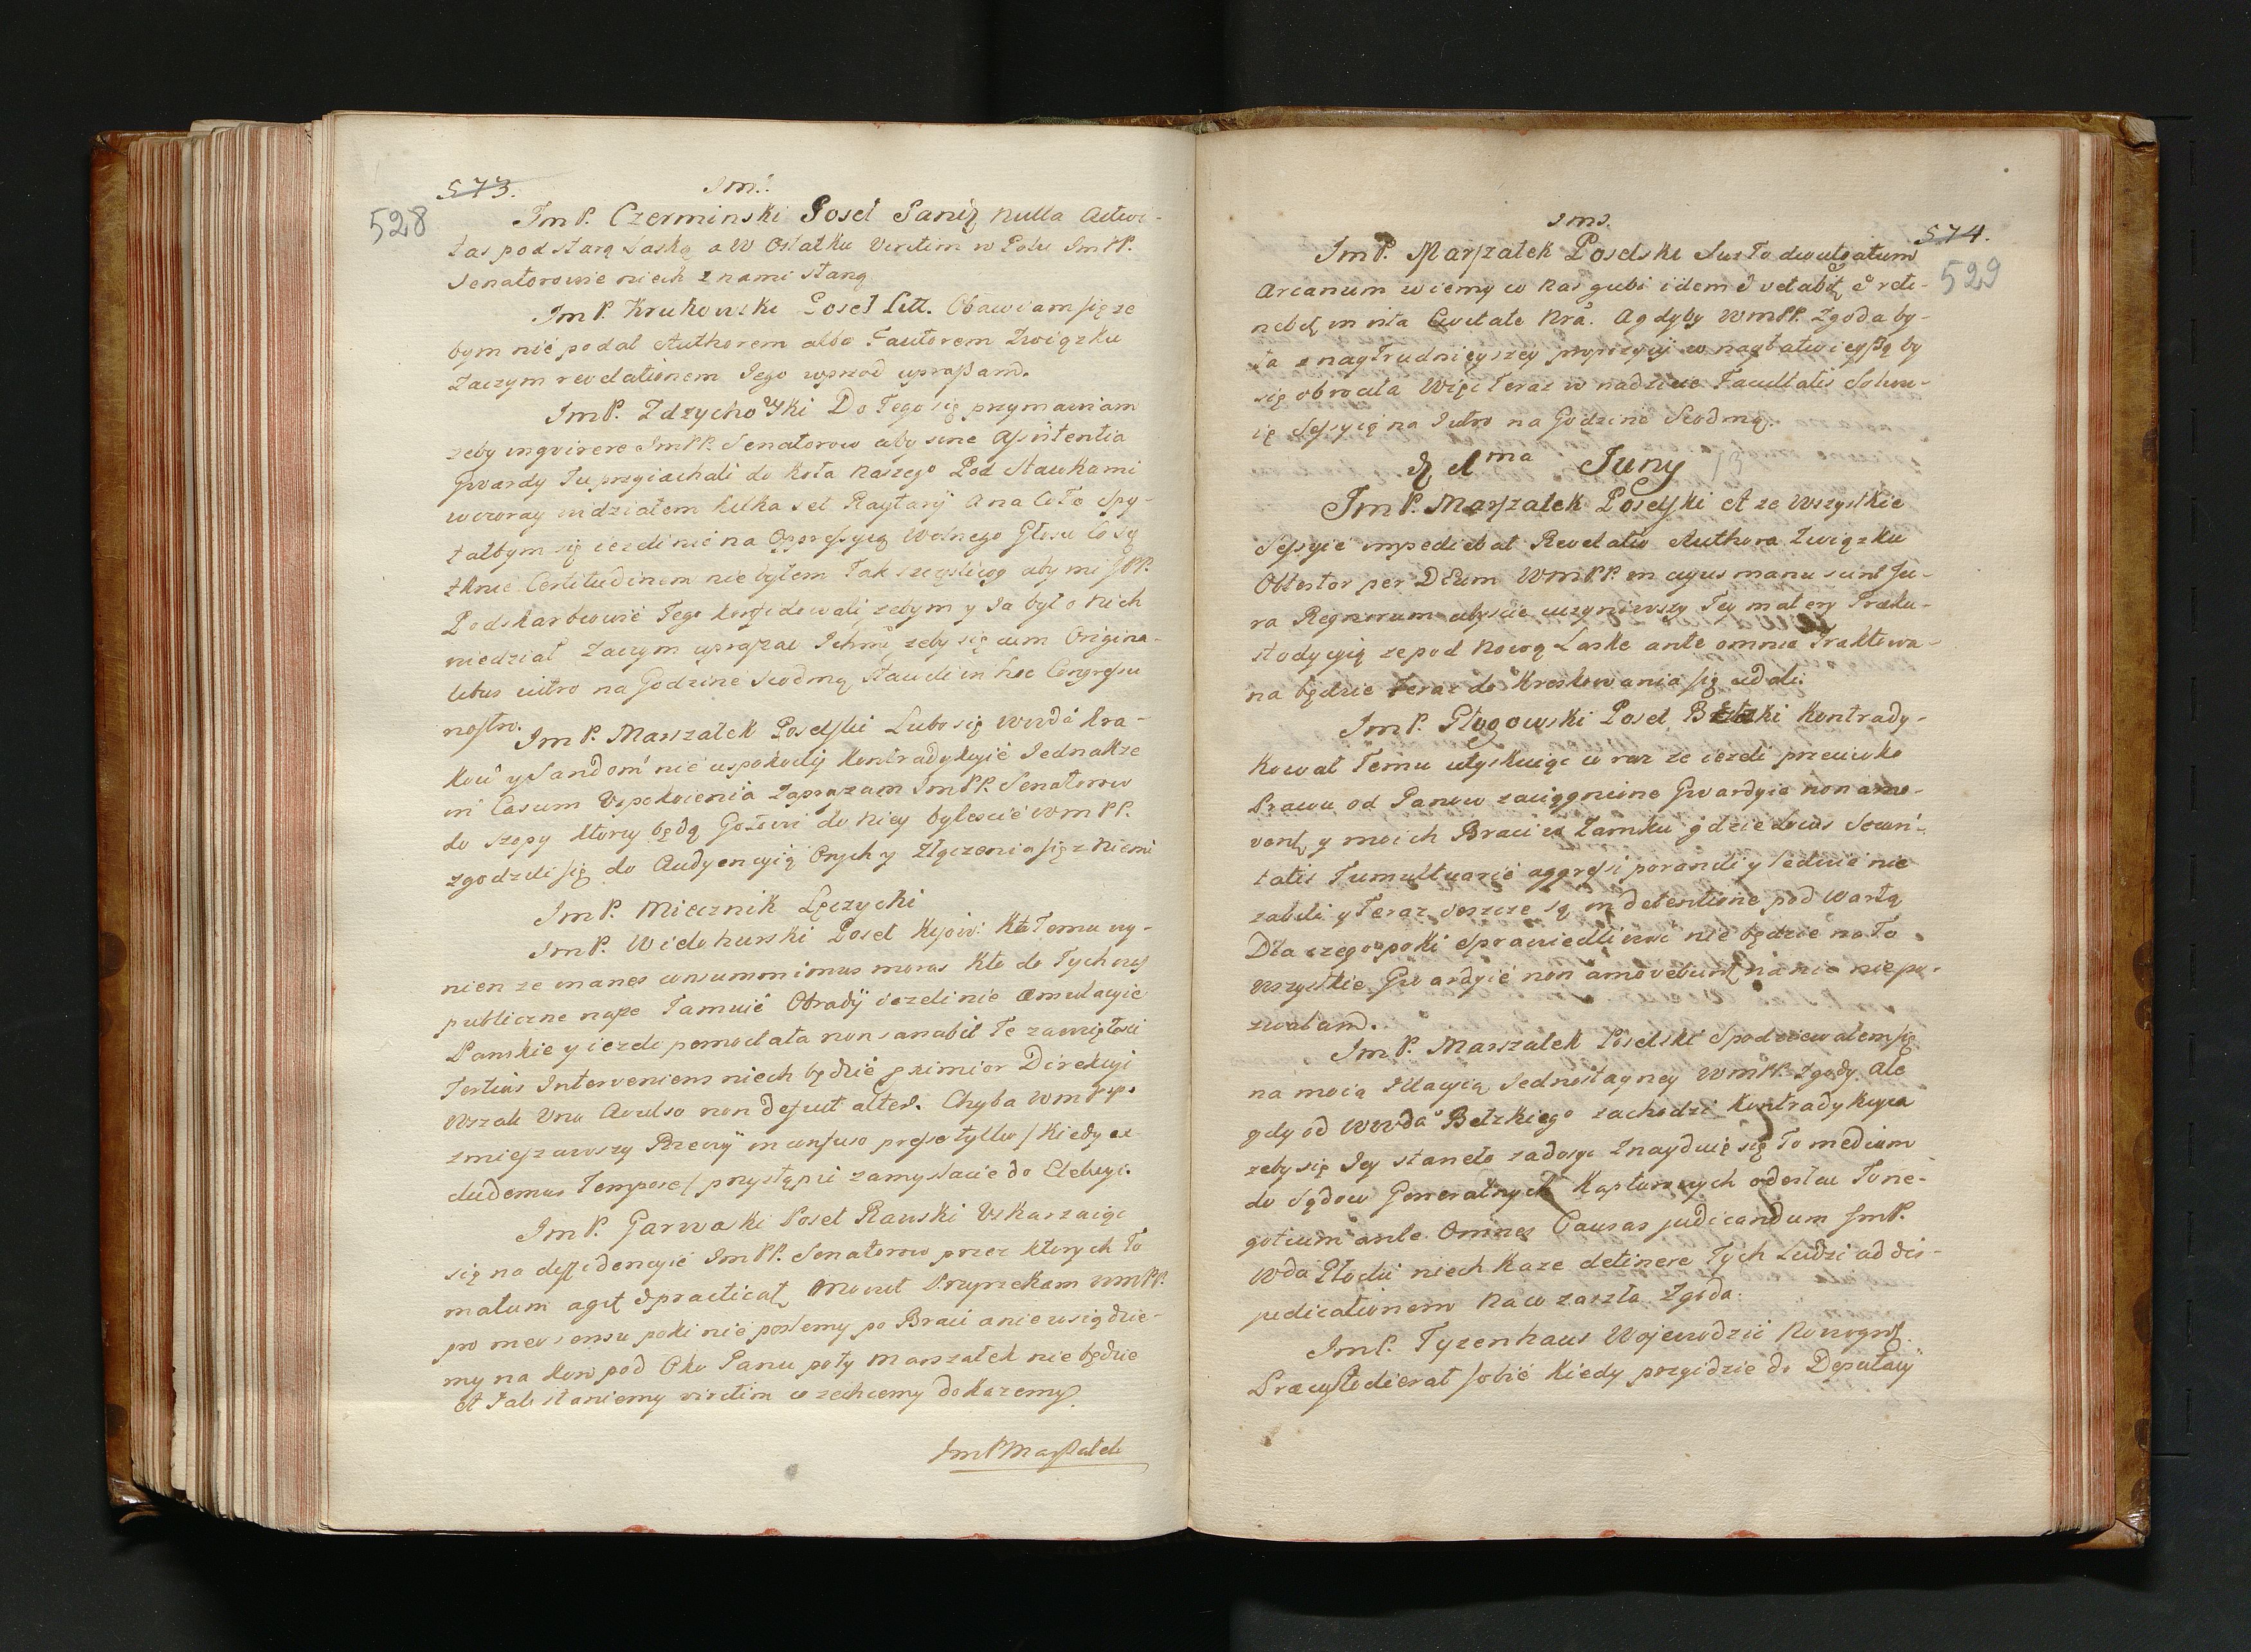 573.
528
Jm.
JmP. Czerminski Poseł Sand nulla activi-
tas pod starą Laską a w Ostatku viritim w Polu JmPP.
Senatorowie niech z nami staną
JmP. Krukowski Poseł Litt. Obawiam się ze
bym nie podał Authorem albo Fautorem Związku
Zaczym revelationem Jego wprzod upraszam.
JmP. Zdzychowski Do Tego się przymawiam
zeby inqvirere JmPP. Senatorow aby sine Assistentia
Gwardy Tu przyiachali do Koła naszego Pod Stawkami
wczoray widziałem kilka set Raytarij A na Co To Spy-
tałbym się iezeli nie na Oppressyią Wolnego Głosu Co Się
tknie Certitudinem nie byłem Tak szczęsliwy aby mi JPP.
Podskarbiowie Tego konfidowali zebym y Ja był o nich
wiedział Zaczym upraszac Jchmci zeby się cum Origina-
libus iutro na Godzine siodmą stawili in hoc Congressu
nostro.
JmP. Marszałek Poselski Lubo się wwda Kra-
kow y Sandom nie uspokoily kontradykcyie Jednakze
in Casum Uspokoienia Zapraszam JmPP. Senatorow
do szopy ktorzy będą Gotowi do niey bylescie WmPP.
zgodzili się do Audyencyią Onych y Złączenia się z niemi
JmP. Miecznik Łęczycki
JmP. Widohurski Poseł Kijow: Kto Temu wy-
nien ze inanes consummimus moras Kto do Tych czas
publiczne nasze Tamuie Obrady iezeli nie æmulacyie
Panskie y iezeli pomoc lata non sanabit Te zawziętosci
Tertius Interveniens niech będzie primior Direkcyi
Wszak Uno Avulso non defuit alter. Chyba WmPP.
zmieszawszy Rzeczy in confuso presso tytlu / Kiedy ex
cludemus Tempore / przystąpic zamyslacie do Elekcyi.
JmP. Garwaski Poseł Rawski Uskarzaiąc
się na diffidencyie JmPP. Senatorow przez ktorych To
malum agit & practicat Mowił Przyrzekam WmPP.
pro meo sensu poki nie poslemy po Braci a nie wsiędzie-
my na Kon pod Oko Panu poty Marszałek nie będzie
A Jak staniemy viritim co zechcemy dokazemy
JmPMarszałek
Jms.
574.
529
JmP. Marszałek Poselski Jus To divulgatum
Arcanum wiemy co nas gubi idem & vetabit & reti-
nebit in ista Civitate Nra. A gdyby WmPP. Zgoda by-
ła z naytrudnieyszey propozycij w nayłatwieyszą by
się obrocila Więc Teraz w nadzieie Facultatis Solwu-
ię Sessyią na Jutro na Godzine Siodmą.
d 1ma Juny 13
JmP. Marszałek Poselski A ze Wszystkie
Sessyie impediebat Revelatio Authora Związku
Obtestor per Deum WmPP. in cuyus manu sunt Ju-
ra Regnorum abyscie uczyniwszy Tey matery Præku-
stodycyią ze pod nową Laske ante omnia Traktowa-
na będzie Teraz do Kreskowania się udali.
JmP. Głogowski Poseł Bełzki Kontrady-
kował Temu utyskuiąc w raz ze iezeli przeciwko
Prawu od Panow zaciągnione Gwardyie non amo-
vent y moich Braci w Zamku gdzie Locus Secur-
tatis Tumultuarie aggressi poranili y ledwie nie
zabili y Teraz ieszcze są in detentione pod wartą
Dla czego poki sprawiedliwosc nie będzie na To
Wszystkie Gwardyie non amovebunt na nic nie po-
zwalam.
JmP. Marszałek Poselski Spodziewałem się
na moią Illacyią Jednostayney WmPP. zgody Ale
gdy od Wwda Bełzkiego zachodzi Kontradykcyia
zeby się Jey staneło zadosyc Znayduię się To medium
do Sądow Generalnych Kapturowych odesłac To ne-
gotium ante Omnes Causas judicandum JmP.
Wda Płocki niech kaze detinere Tych Ludzi ad dis-
judicationem na co zaszła Zgoda.
JmP. Tyzenhaus Wojewodzic Nowogrd.
Præcustodierat sobie Kiedy przyidzie do Deputacij